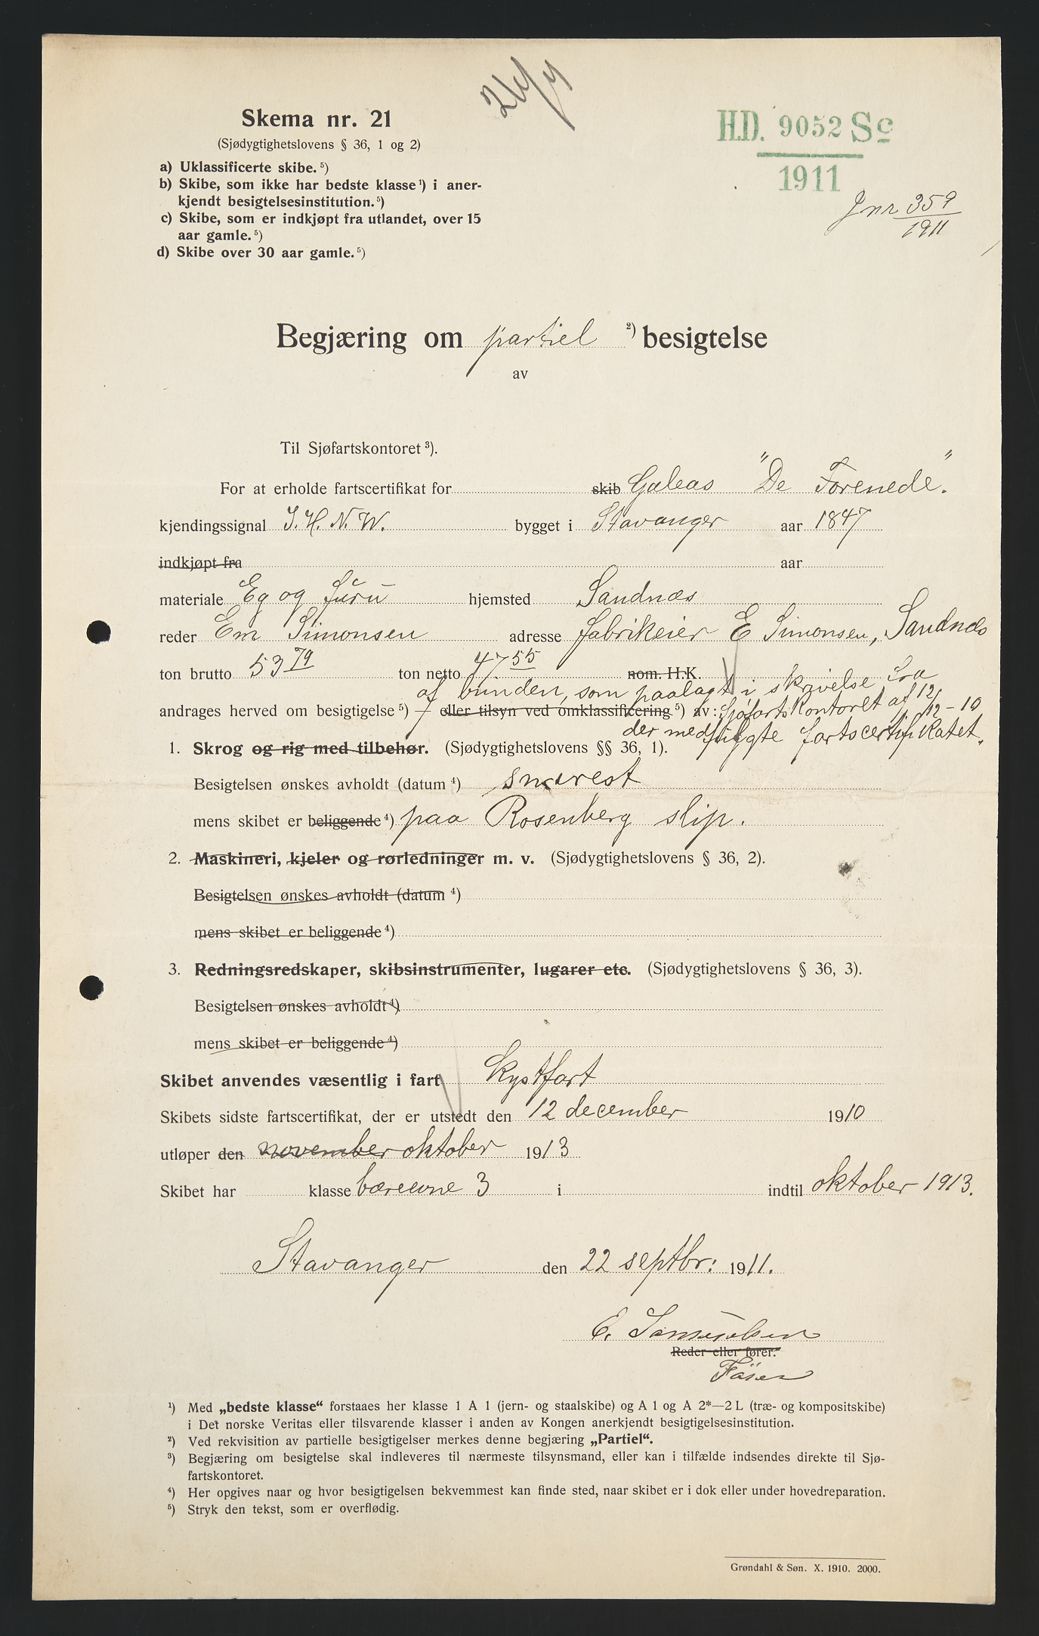 26/9
Skema nr. 21
(Sjødygtighetslovens § 36, 1 og 2)
a) Uklassificerte skibe.⁵)
b) Skibe, som ikke har bedste klasse¹) i aner-
kjendt besigtelsesinstitution.⁵)
c) Skibe, som er indkjøpt fra utlandet, over 15
aar gamle.⁵)
d) Skibe over 30 aar gamle.⁵)
H.D. 9052 Sc
1911
Jnr 359
1911
Begjæring om partiel ²) besigtelse
av
Til Sjøfartskontoret³).
For at erholde fartscertifikat for skib Galeas "De Forenede".
kjendingssignal J. H. N. W. bygget i Stavanger aar 1847
indkjøpt fra aar
materiale Eg og Furu hjemsted Sandnæs
reder Em Simonsen adresse fabrikeier E Simonsen, Sandnæs
ton brutto 53 79 ton netto 47 55 nom. H.K.
af bunden, som paalagt i skrivelse fra
andrages herved om besigtigelse⁵) eller tilsyn ved omklassificering⁵) av: Sjøfartskontoret af 12/12-10
der medfulgte fartscertifikatet.
1. Skrog og rig med tilbehør. (Sjødygtighetslovens §§ 36, 1).
Besigtelsen ønskes avholdt (datum⁴) snarest
mens skibet er beliggende⁴) paa Rosenberg slip.
2. Maskineri, kjeler og rørledninger m. v. (Sjødygtighetslovens § 36, 2).
Besigtelsen ønskes avholdt (datum⁴)
mens skibet er beliggende⁴)
3. Redningsredskaper, skibsinstrumenter, lugarer etc. (Sjødygtighetslovens § 36, 3).
Besigtelsen ønskes avholdt⁴)
mens skibet er beliggende⁴)
Skibet anvendes væsentlig i fart Kystfart
Skibets sidste fartscertifikat, der er utstedt den 12 december 1910
utløper den november oktober 1913
Skibet har klasse bæreevne 3 i indtil oktober 1913.
Stavanger den 22 septbr: 1911.
E. Samuelsen
Reder eller fører.
¹) Med „bedste klasse“ forstaaes her klasse 1 A 1 (jern- og staalskibe) og A 1 og A 2*—2 L (træ- og kompositskibe)
i Det norske Veritas eller tilsvarende klasser i anden av Kongen anerkjendt besigtigelsesinstitution.
²) Ved rekvisition av partielle besigtigelser merkes denne begjæring „Partiel“.
³) Begjæring om besigtelse skal indleveres til nærmeste tilsynsmand, eller kan i tilfælde indsendes direkte til Sjø-
fartskontoret.
⁴) Her opgives naar og hvor besigtigelsen bekvemmest kan finde sted, naar skibet er i dok eller under hovedreparation.
⁵) Stryk den tekst, som er overflødig.
Grøndahl & Søn. X. 1910. 2000.